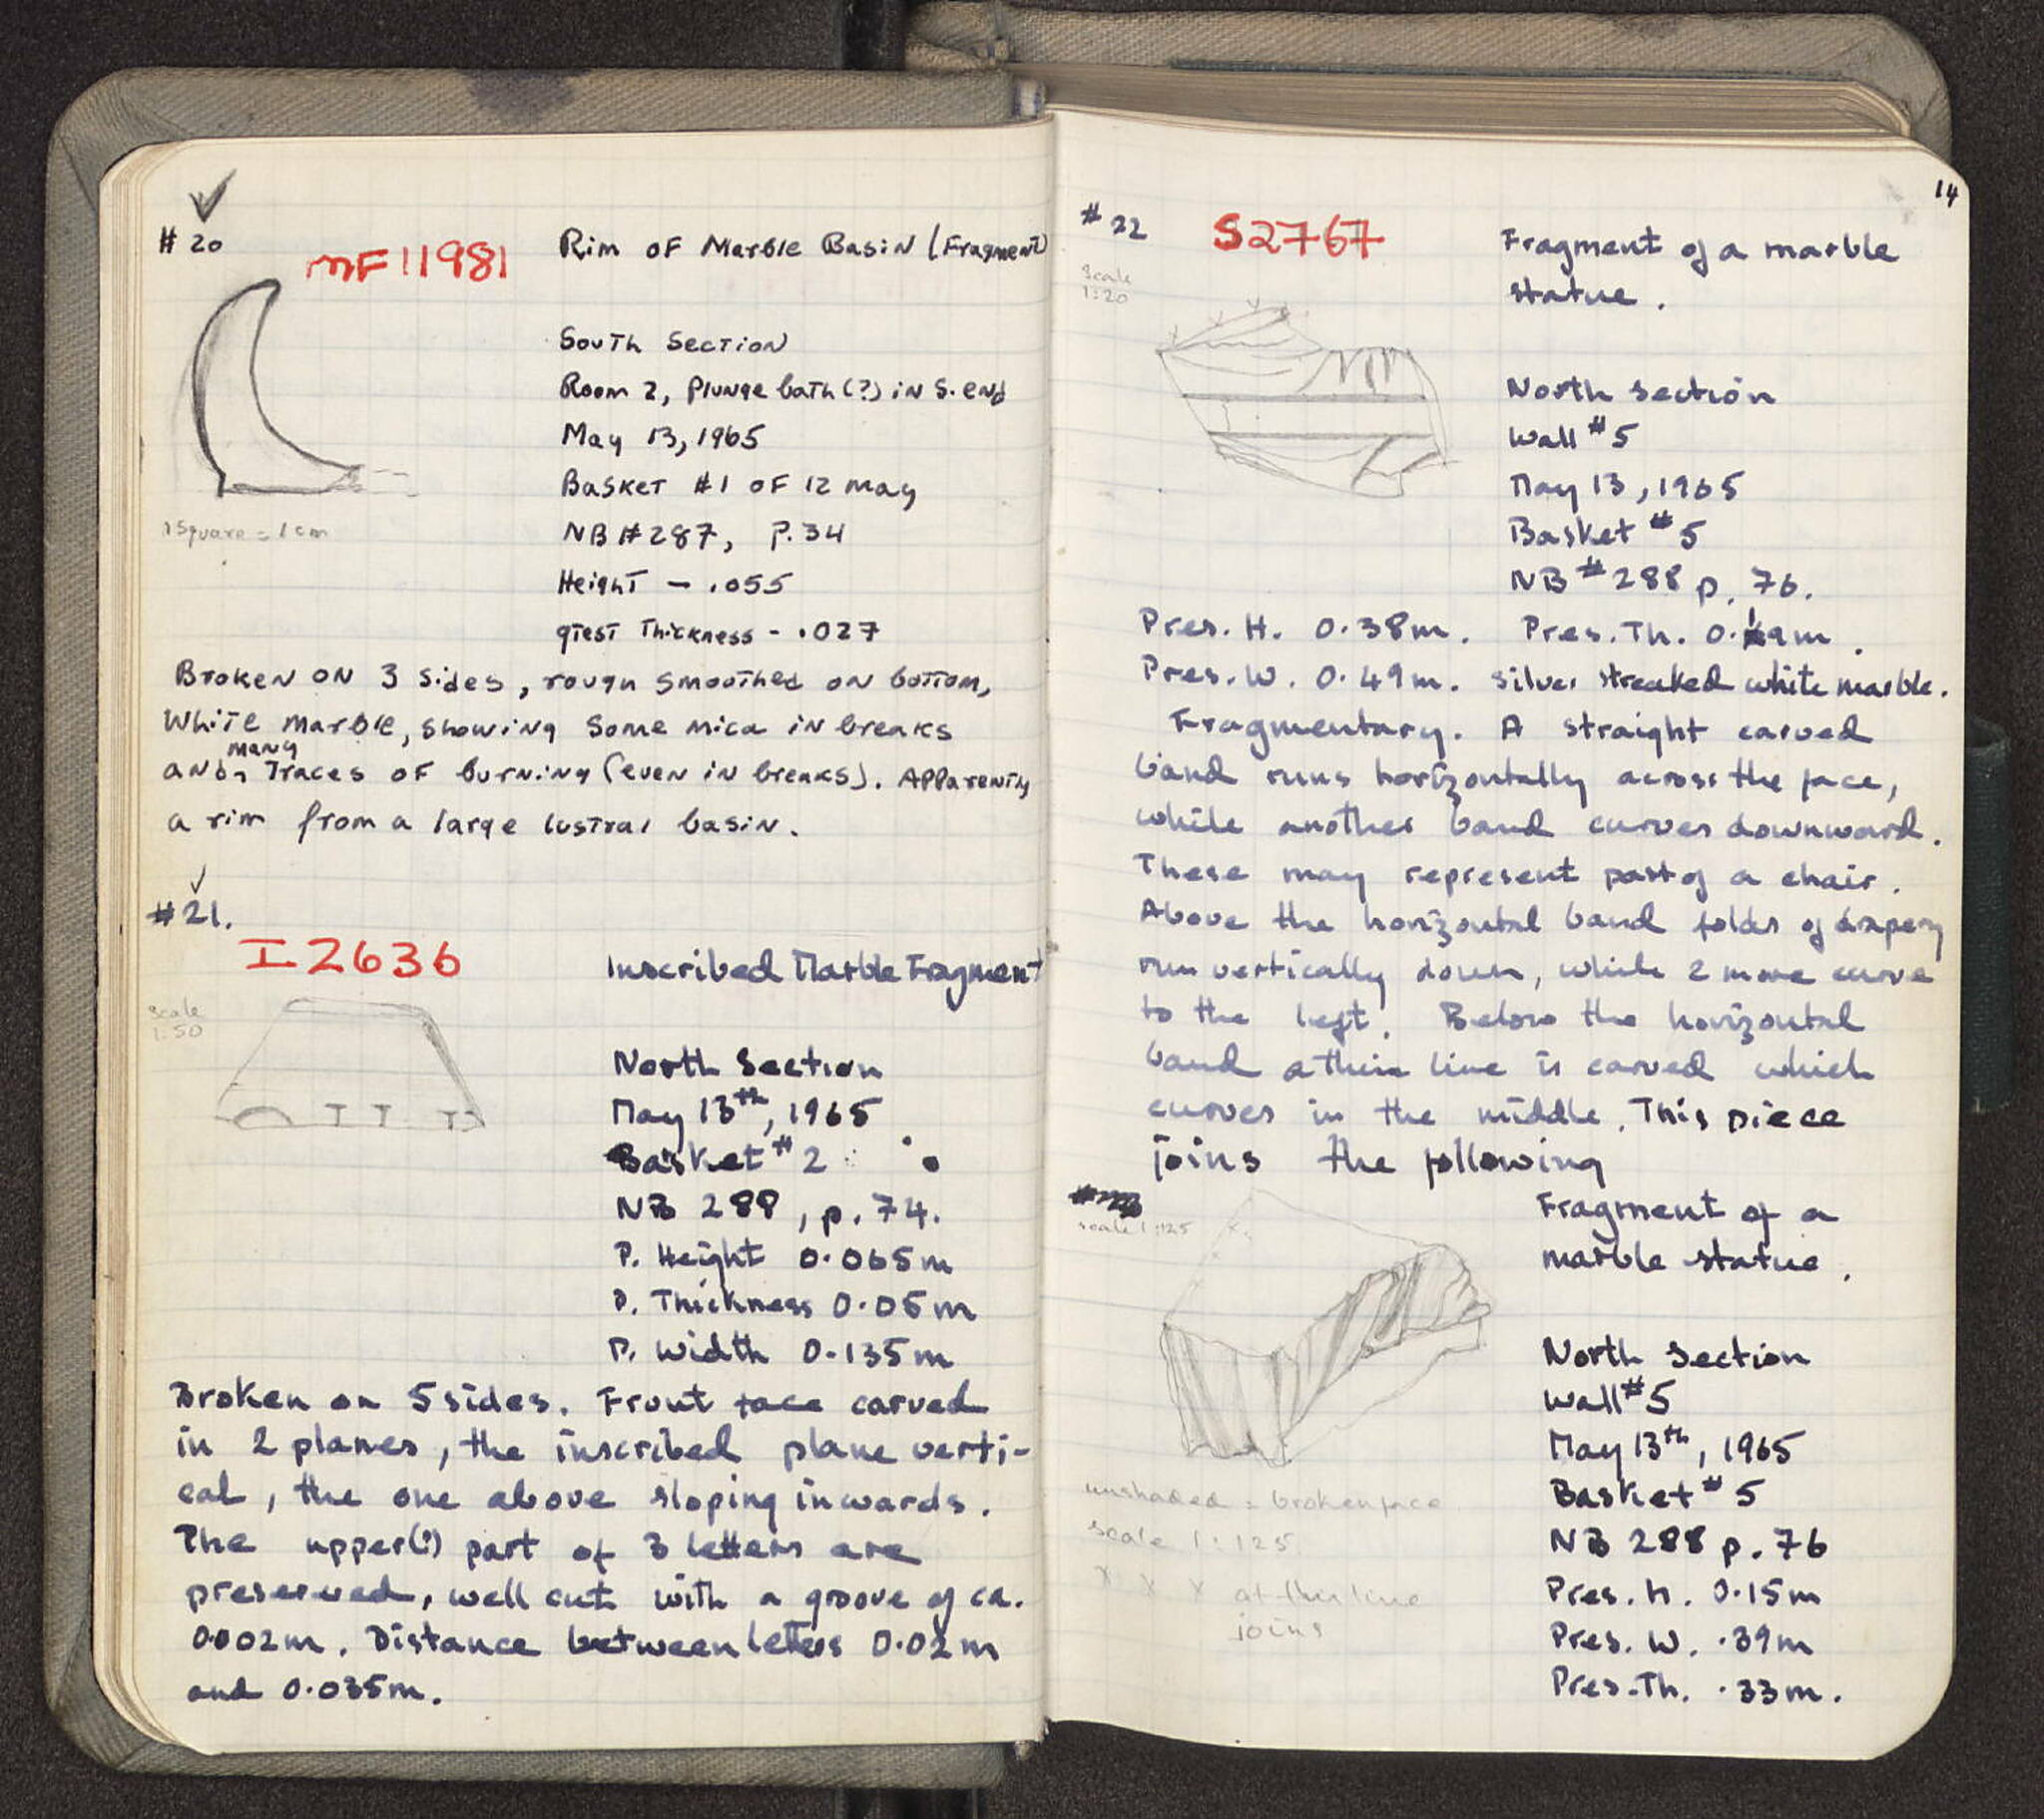 # 20
MF 11981
Rim of Marble Basin (Fragment)
South Section
Room 2, Plunge bath (?) in S. end
May 13, 1965
Basket #1 of 12 May
NB # 287, P. 34
Height – .055
gtest Thickness - .027
1 Square = 1 cm
Broken on 3 sides, rough smoothed on bottom,
White marble, showing some mica in breaks
many
and traces of burning (even in breaks). Apparently
a rim from a large lustral basin.
#21.
I 2636
Inscribed Marble Fragment
scale
1:50
North Section
May 13th, 1965
Basket # 2
NB 288, p. 74.
P. Height 0.065m
P. Thickness 0.05m
P. Width 0.135m
Broken on 5 sides. Front face carved
in 2 planes, the inscribed plane verti-
cal, the one above sloping inwards.
The upper(?) part of 3 letters are
preserved, well cut with a groove of ca.
0.002m. Distance between letters 0.02m
and 0.035m.
14
# 22
S2767
Fragment of a marble
statue.
Scale
1:20
North Section
Wall # 5
May 13, 1965
Basket # 5
NB # 288 p. 76.
Pres. H. 0.38m. Pres. Th.
Pres. W. 0.49m. silver streaked white marble.
Fragmentary. A straight carved
band runs horizontally across the face,
while another band curves downward.
These may represent part of a chair.
Above the horizontal band folds of drapery
run vertically down, while 2 more curve
to the left. Below the horizontal
band a thin line is carved which
curves in the middle. This piece
joins the following
scale 1:125
Fragment of a
marble statue.
North Section
Wall # 5
May 13th, 1965
Basket # 5
NB 288 p. 76
Pres. H. 0.15m
Pres. W. .39m
Pres. Th. .33m.
unshaded = broken face
scale 1:125
x x x at this line
joins